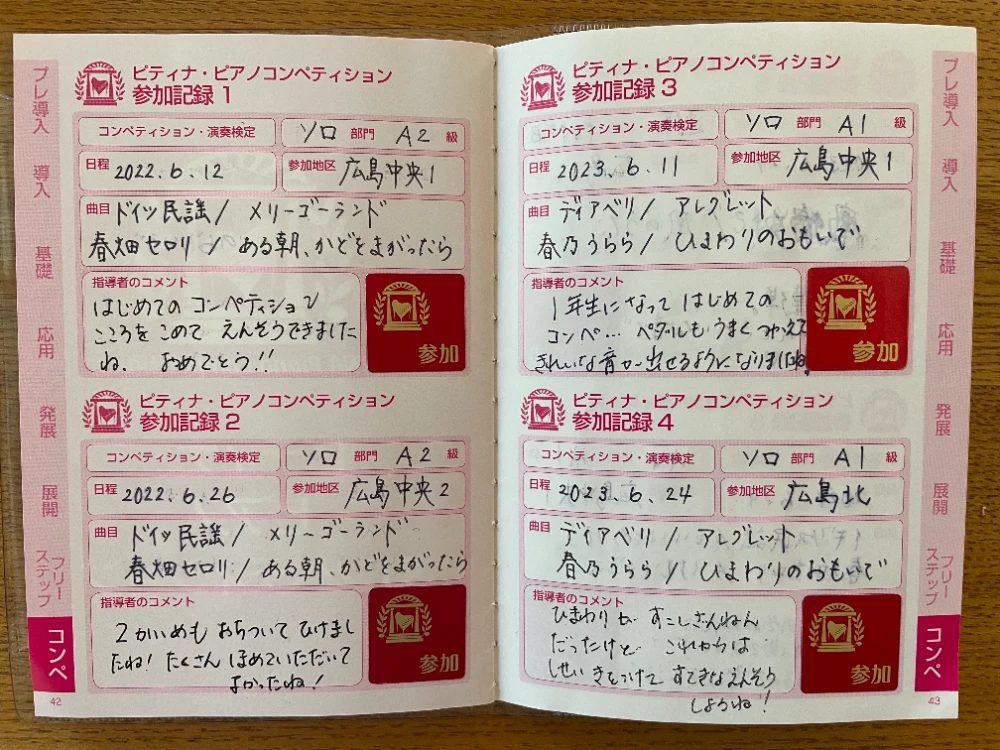 プレ導入
導入
基礎
応用
発展
展開
フリーステップ
コンペ
42
ピティナ・ピアノコンペティション
参加記録 1
コンペティション・演奏検定
ソロ 部門 A2 級
日程 2022.6.12
参加地区 広島中央1
曲目 ドイツ民謡/ メリーゴーランド
春畑セロリ/ ある朝、かどをまがったら
指導者のコメント
はじめての コンペティション
こころを こめて えんそうできました
ね. おめでとう!!
参加
ピティナ・ピアノコンペティション
参加記録 2
コンペティション・演奏検定
ソロ 部門 A2 級
日程 2022.6.26
参加地区 広島中央2
曲目 ドイツ民謡/ メリーゴーランド
春畑セロリ/ ある朝、かどをまがったら
指導者のコメント
2かいめも おちついて ひけまし
たね! たくさん ほめていただいて
よかったね!
参加
ピティナ・ピアノコンペティション
参加記録 3
コンペティション・演奏検定
ソロ 部門 A1 級
日程 2023.6.11
参加地区 広島中央1
曲目 ディアベリ/ アレグレット
春乃うらら/ ひまわりのおもいで
指導者のコメント
1年生になって はじめての
コンペ… ペダルも うまく つかえて
きれいな音が出せるようになりましたね
参加
ピティナ・ピアノコンペティション
参加記録 4
コンペティション・演奏検定
ソロ 部門 A1 級
日程 2023.6.24
参加地区 広島北
曲目 ディアベリ/ アレグレット
春乃うらら/ ひまわりのおもいで
指導者のコメント
ひまわりが すこしざんねん
だったけど これからは
しせい きをつけて すてきなえんそう
しようね!
参加
プレ導入
導入
基礎
応用
発展
展開
フリーステップ
コンペ
43